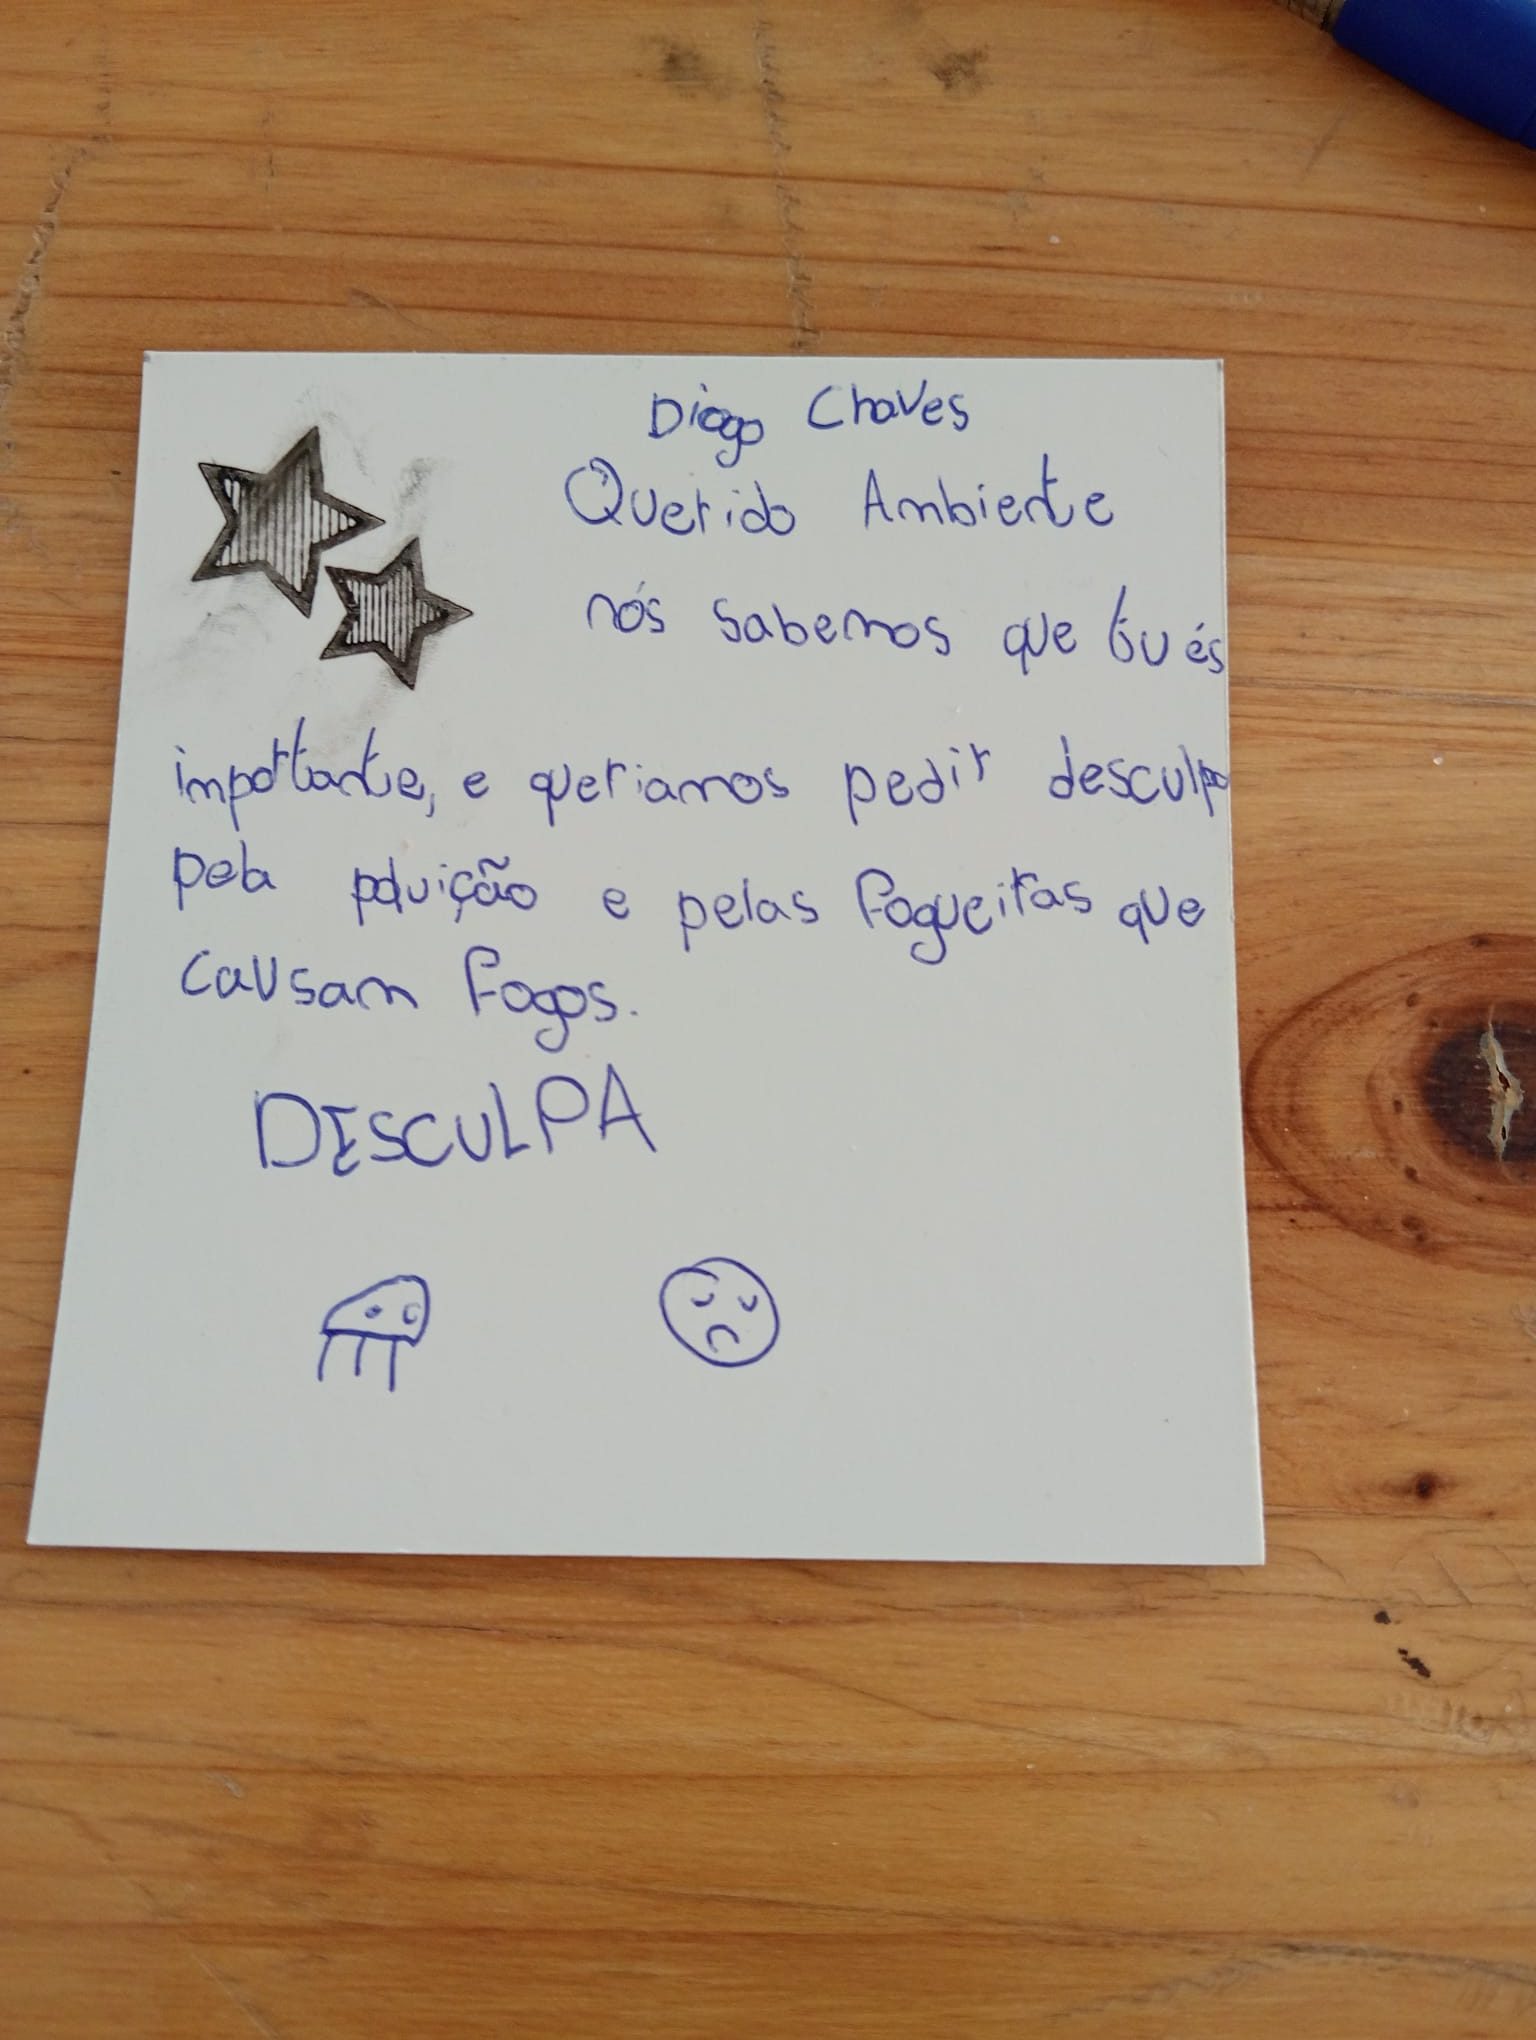 Diogo Chaves
Querido Ambiente
nós sabemos que tu és
importante, e queriamos pedir desculpa
pela poluição e pelas fogueiras que
causam fogos.
DESCULPA